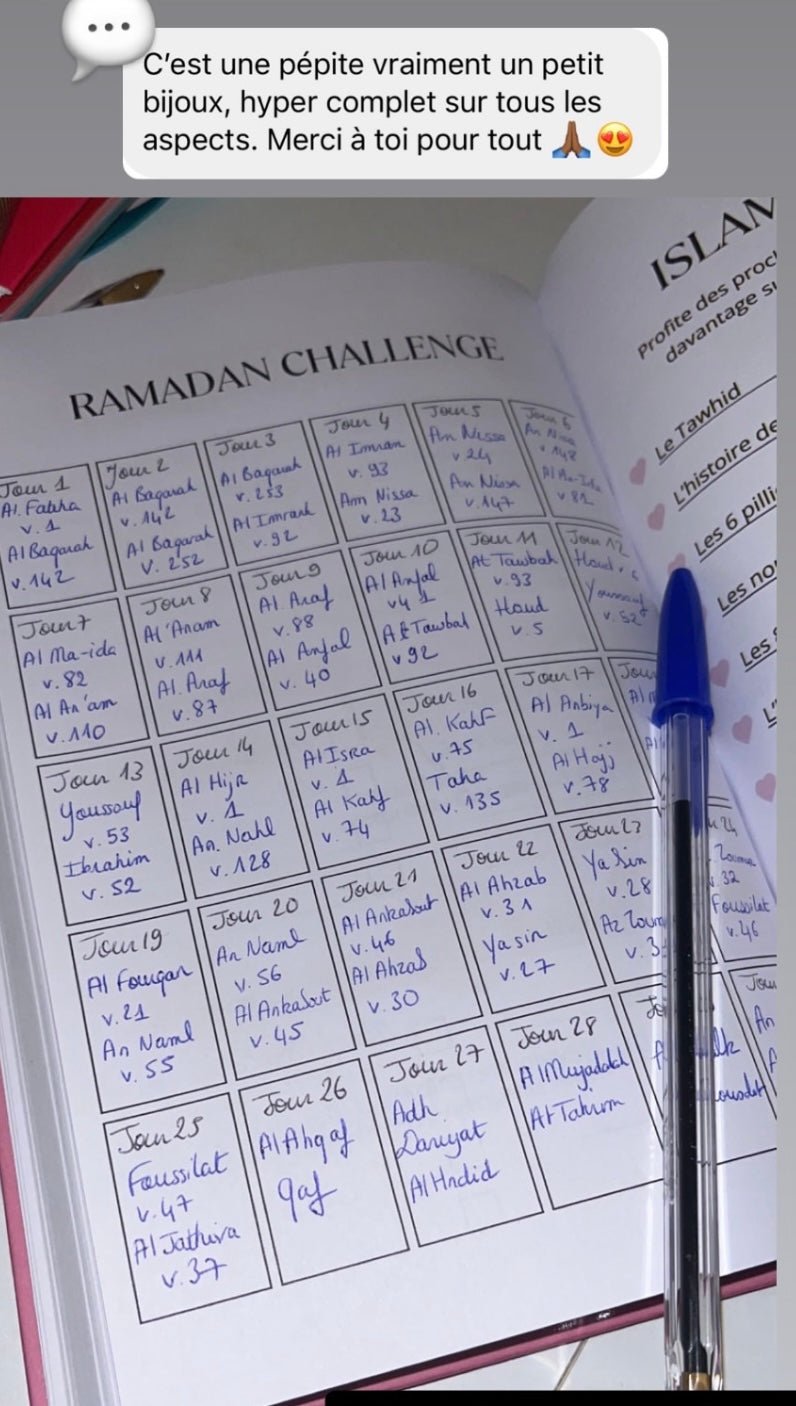 C'est une pépite vraiment un petit
bijou, hyper complet sur tous les
aspects. Merci à toi pour tout 🙏🏾😍
RAMADAN CHALLENGE
Jour 1
Al. Fatiha
v. 1
Al Baqarah
v. 142
Jour 2
Al Baqarah
v. 142
Al Baqarah
v. 252
Jour 3
Al Baqarah
v. 253
Al Imrank
v. 92
Jour 4
Al Imran
v. 93
Ann Nissa
v. 23
Jour 5
An Nissa
v 24
An Nissa
v. 147
Jour 6
An Nissa
v 148
v. 81
Jour 7
Al Ma-ida
v. 82
Al An'am
v. 110
Jour 8
Al'Anam
v. 111
Al. Araf
v. 87
Jour 9
Al. Araf
v. 88
Al Anfal
v. 40
Jour 10
Al Anfal
v 41
At Tawbah
v 92
Jour 11
At Tawbah
v. 93
Houd
v. 5
Jour 12
Houd v. 6
Youssouf
v. 52
Jour 13
Youssouf
v. 53
Ibrahim
v. 52
Jour 14
Al Hijr
v. 1
An. Nahl
v. 128
Jour 15
Al Isra
v. 1
Al Kahf
v. 74
Jour 16
Al. Kahf
v. 75
Taha
v. 135
Jour 17
Al Anbiya
v. 1
Al Hajj
v. 78
Jour
Jour 19
Al Fourqan
v. 21
An Naml
v. 55
Jour 20
An Naml
v. 56
Al Ankabout
v. 45
Jour 21
Al Ankabout
v. 46
Al Ahzab
v. 30
Jour 22
Al Ahzab
v. 31
Yasin
v. 27
Jour 23
Ya Sin
v. 28
Az Zoum
v. 3
24
Zoumar
v. 32
Foussilat
v. 46
Jour 25
Foussilat
v. 47
Al Jathiya
v. 37
Jour 26
Al Ahqaf
qaf
Jour 27
Adh
Dariyat
Al Hadid
Jour 28
Al Mujadalah
At Tahrim
Jour
An
ISLAM
Profite des proc
davantage su
Le Tawhid
L'histoire de
Les 6 pilli
Les no
Les
L'